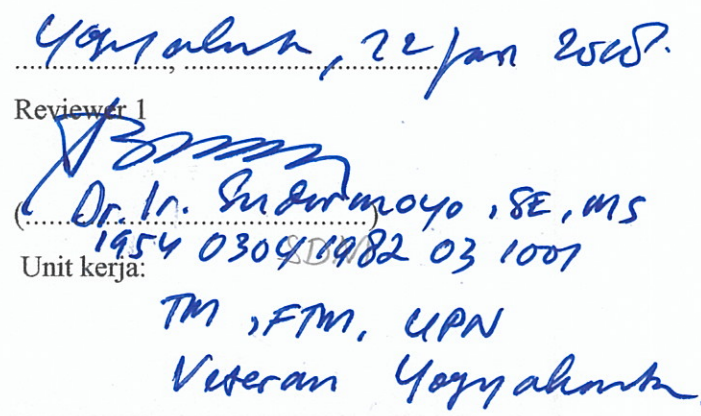 Yogyakarta, 22 Jan 2018.
Reviewer 1
(Dr. Ir. Sudarmoyo, SE, MS)
1954 0304 1982 03 1001
Unit kerja:
TM, FTM, UPN
Veteran Yogyakarta